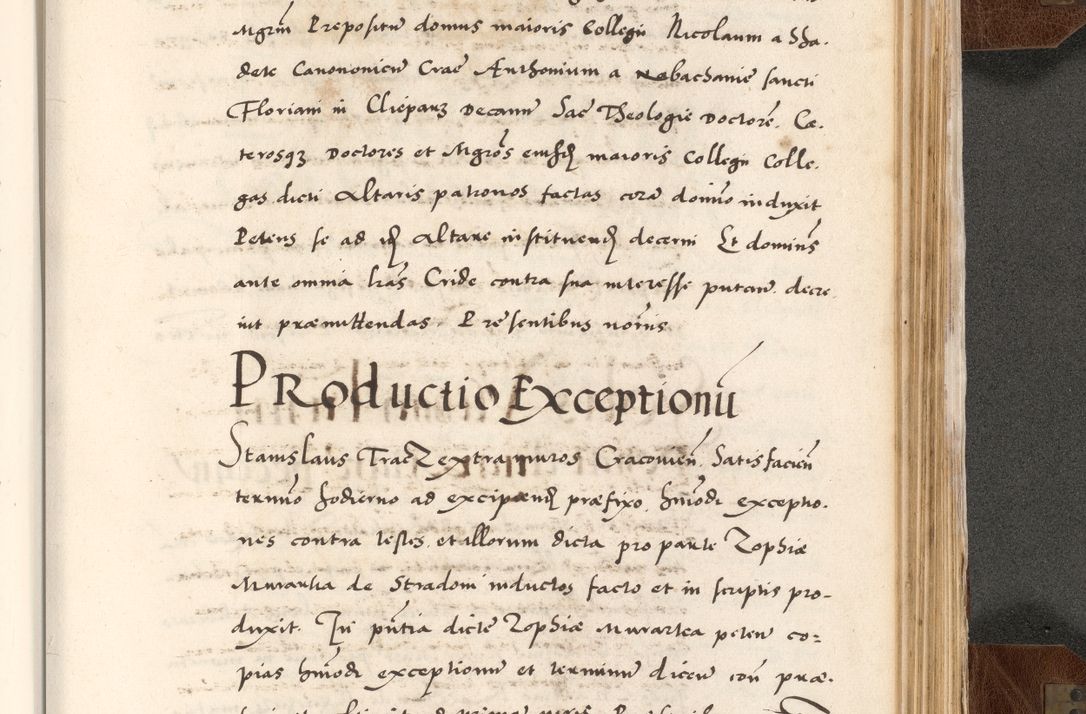 Mgrm̄ Prepositū domus maioris Collegii Nicolaum a Sha-
dek Canononicū Crać Anthonium a Nebachanie sancti
Floriani in Clieparz Decanū Sać Theologie Doctorē. Cæ-
terosqʒ Doctores et Mgrōs eiusdē maioris Collegii Colle-
gas dicti Altaris patronos factas corā domīo induxit
Petens se ad id Altare instituend decerni Et domins
ante omnia lrās Cride contra sua interesse putan. decre
uit præmittendas. Præsentibus notīis
PRoductio Exceptionū
Stanislaus Tracz extra muros Cracovień. Satisfacień
termīo hodierno ad excipiend præfixo. hmōdi exceptio-
nes contra testes et illorum dicta pro parte Zophiæ
Murarka de Stradom inductos facto et in scriptis pro-
duxit. In pñtia dicte Zophiæ Murarka peten co=
pias hmōdi exceptionū et terminū dicen con præ-